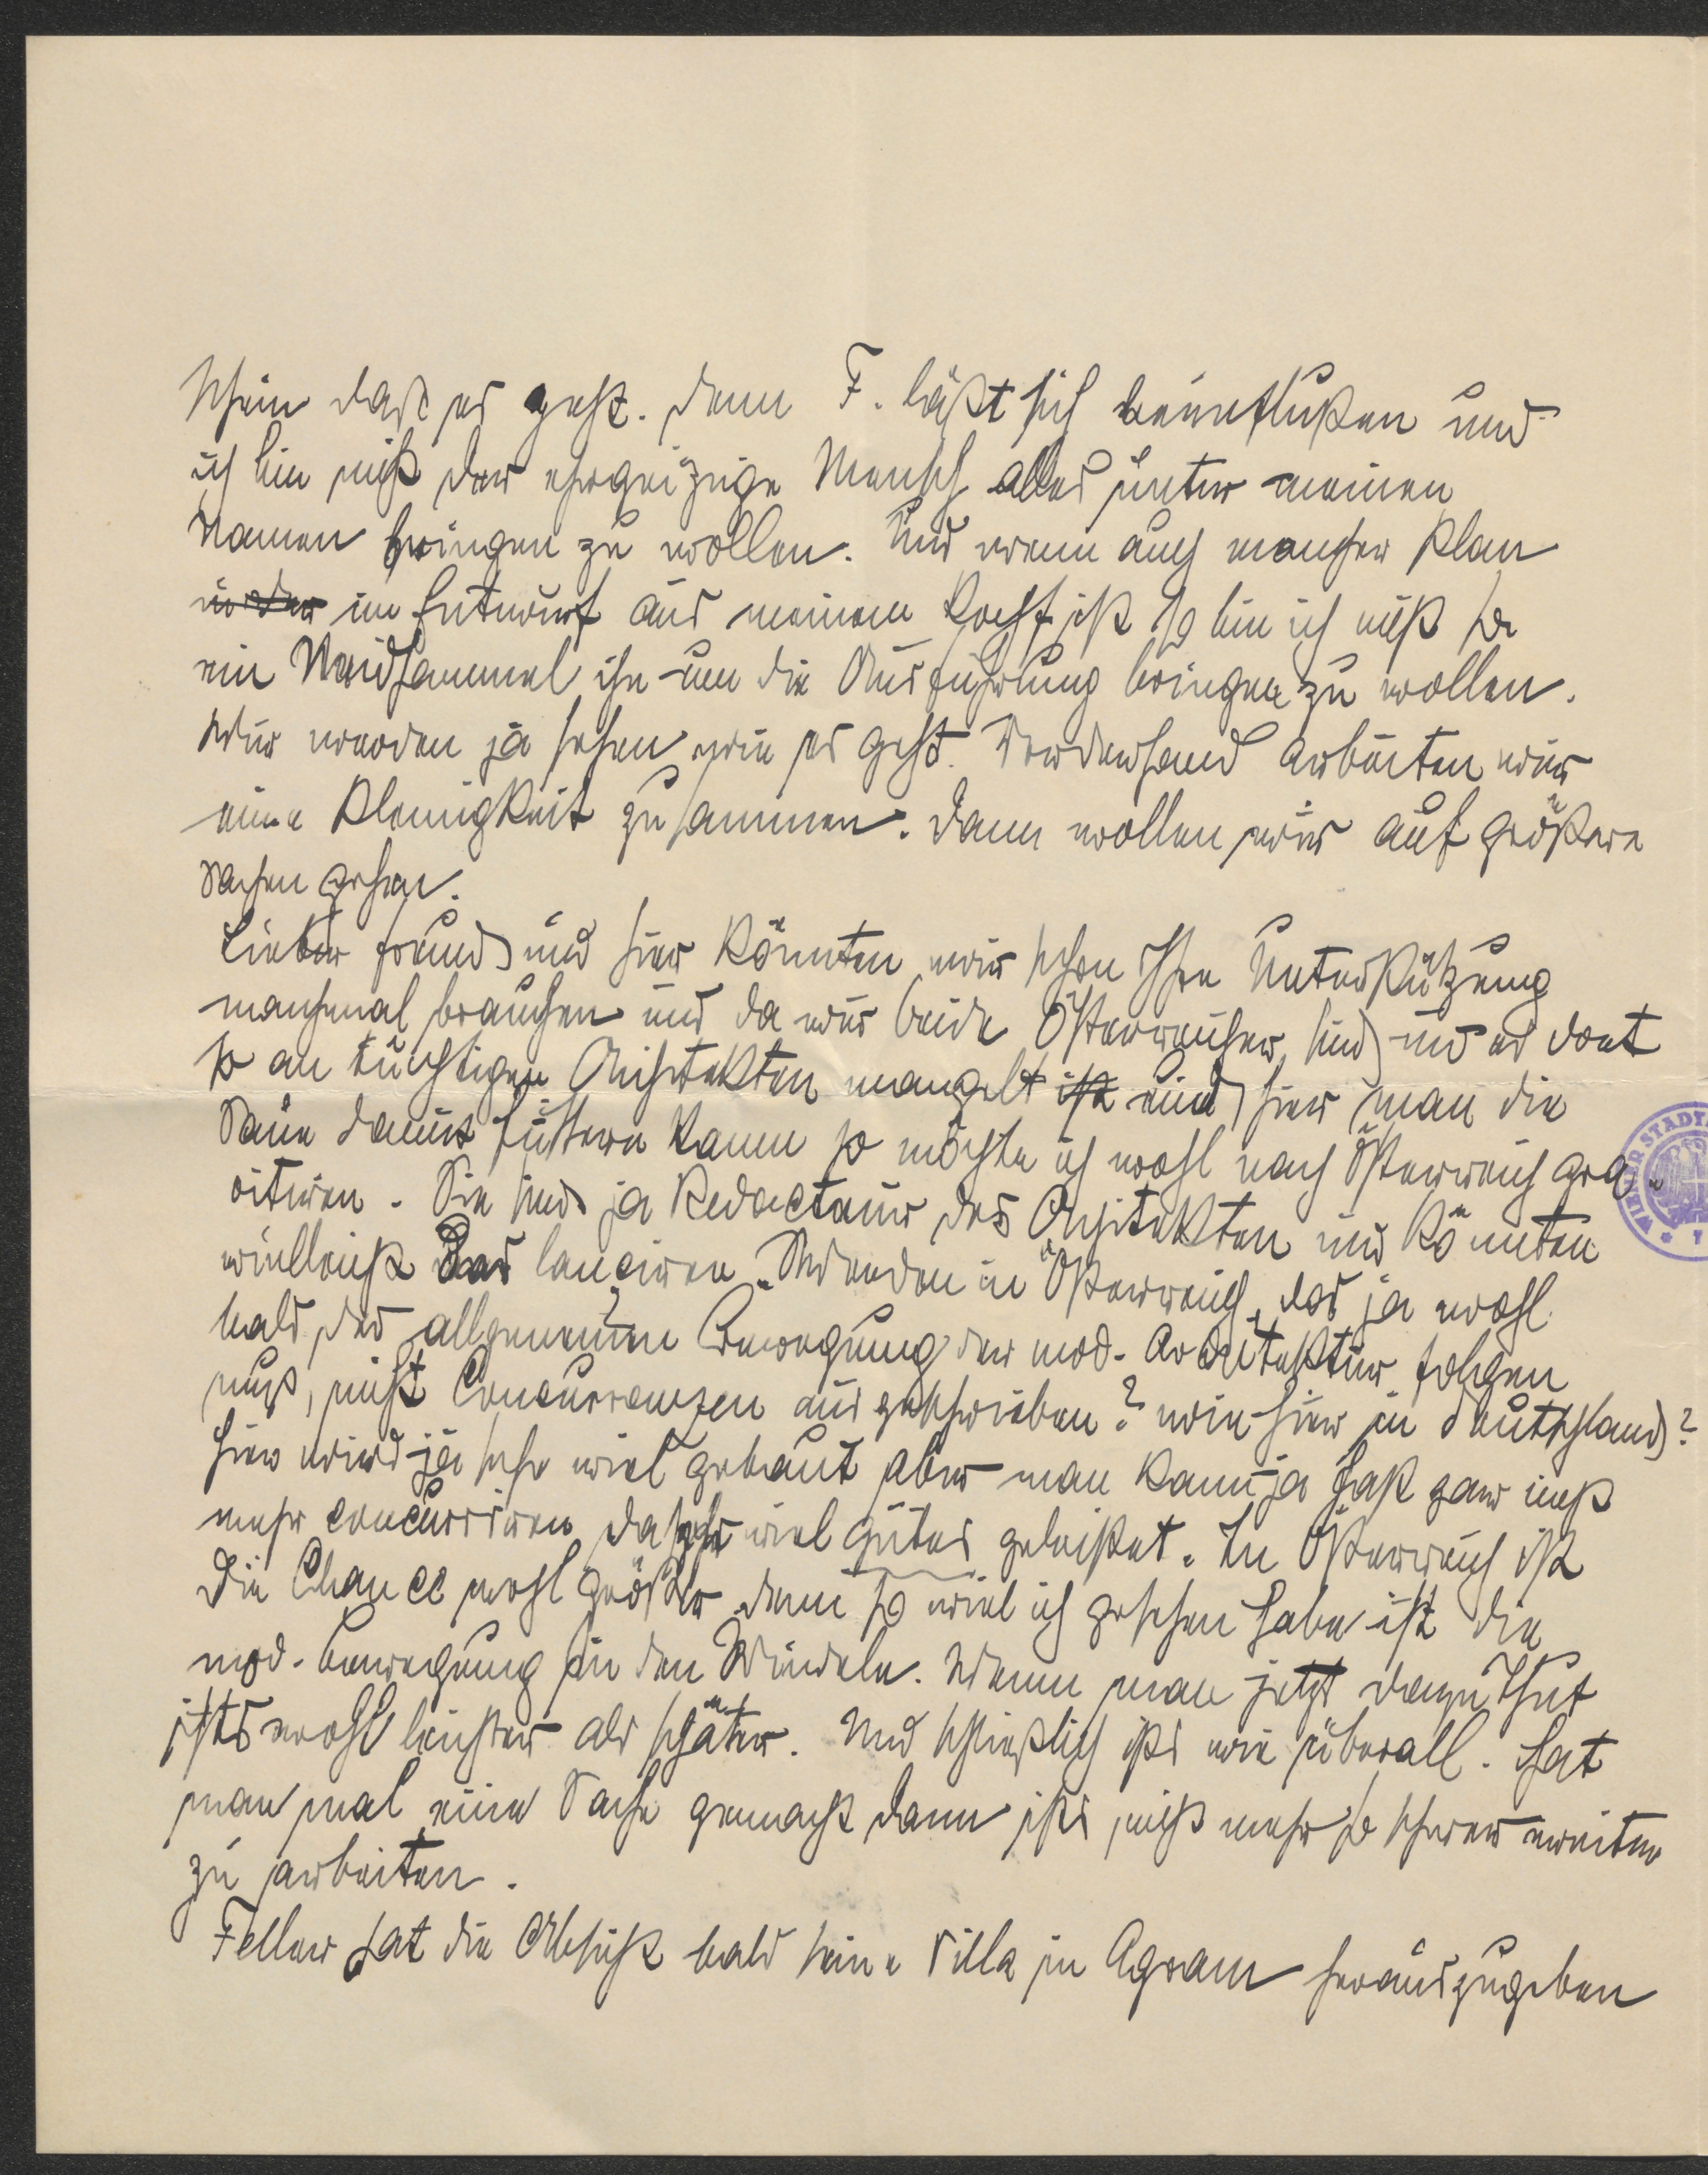 schein daß es geht. denn F. läßt sich beinflußen und
ich bin nicht der ehrgeizige Mensch alles unter meinen
Namen bringen zu wollen. Und wenn auch mancher Plan
in der im Entwurf aus meinem Kopf ist so bin ich nicht so
ein Neidhammel ihn um die Ausführung bringen zu wollen.
Wir werden ja sehen wie es geht. Vorderhand arbeiten wir
eine Kleinigkeit zusammen. Dann wollen wir auf größere
Sachen gehen.
Lieber Freund und hier könnten wir schon Ihre Unterstützung
manchmal brauchen und da wir beide Österreicher sind und es dort
so an tüchtigen Architekten mangelt ist und hier man die
Säue damit füttern kann so möchte ich wohl nach Österreich gra-
vitiren. Sie sind ja Redacteur des Architekten und könnten
vielleicht das lanciren. Werden in Österreich, das ja wohl
bald der allgemeinen Bewegung der mod. Architektur folgen
muß, nicht Concurrenzen ausgeschrieben? wie hier in Deutschland?
Hier wird ja sehr viel gebaut aber man kann ja fast gar nicht
mehr concurriren da sehr viel gutes geleistet. In Österreich ist
die Chance wohl größer denn so viel ich gesehen habe ist die
mod. Bewegung in den Windeln. Wenn man jetzt dazu thut
ists wohl leichter als später. Und schließlich ists wie überall. Hat
man mal eine Sache gemacht dann ists nicht mehr so schwer weiter
zu arbeiten.
Feller hat die Absicht bald seine Villa in Agram herauszugeben